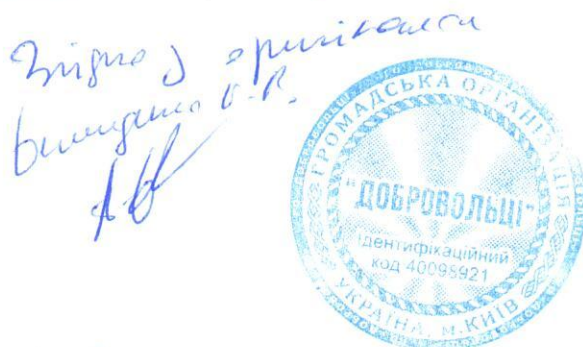 Згідно з оригіналом
В.Р.
ГРОМАДСЬКА ОРГАНІЗАЦІЯ
"ДОБРОВОЛЬЦІ"
Ідентифікаційний
код 40098921
УКРАЇНА, м.КИЇВ